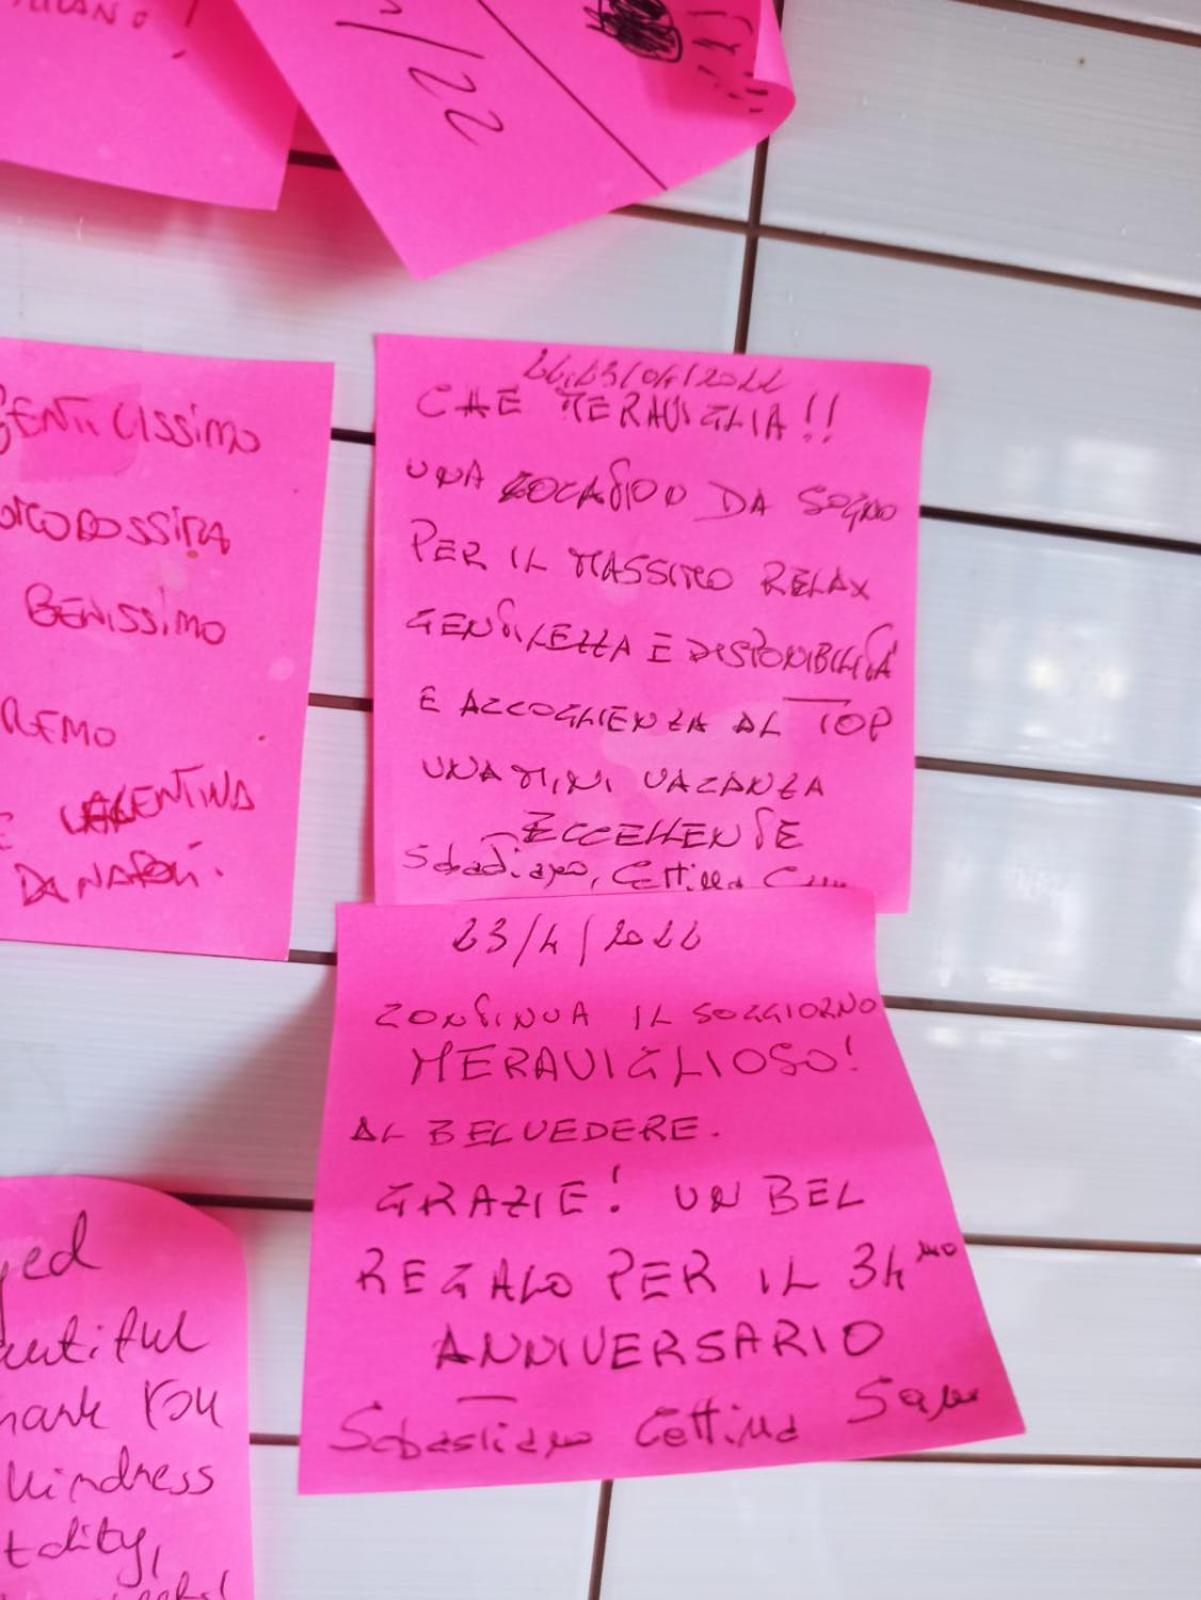 22
GENTILISSIMO
BENISSIMO
REMO
E VALENTINA
DA NAPOLI.
22,23/04/2022
CHE MERAVIGLIA!!
UNA LOCATION DA SOGNO
PER IL MASSIMO RELAX
GENTILEZZA E DISPONIBILITÀ
E ACCOGLIENZA AL TOP
UNA MINI VACANZA
ECCELLENTE
Sebastiano, Cettina
23/4/2022
CONTINUA IL SOGGIORNO
MERAVIGLIOSO!
AL BELVEDERE.
GRAZIE! UN BEL
REGALO PER IL 34mo
ANNIVERSARIO
Sebastiano Cettina
eautiful
hank You
kindness
tality,